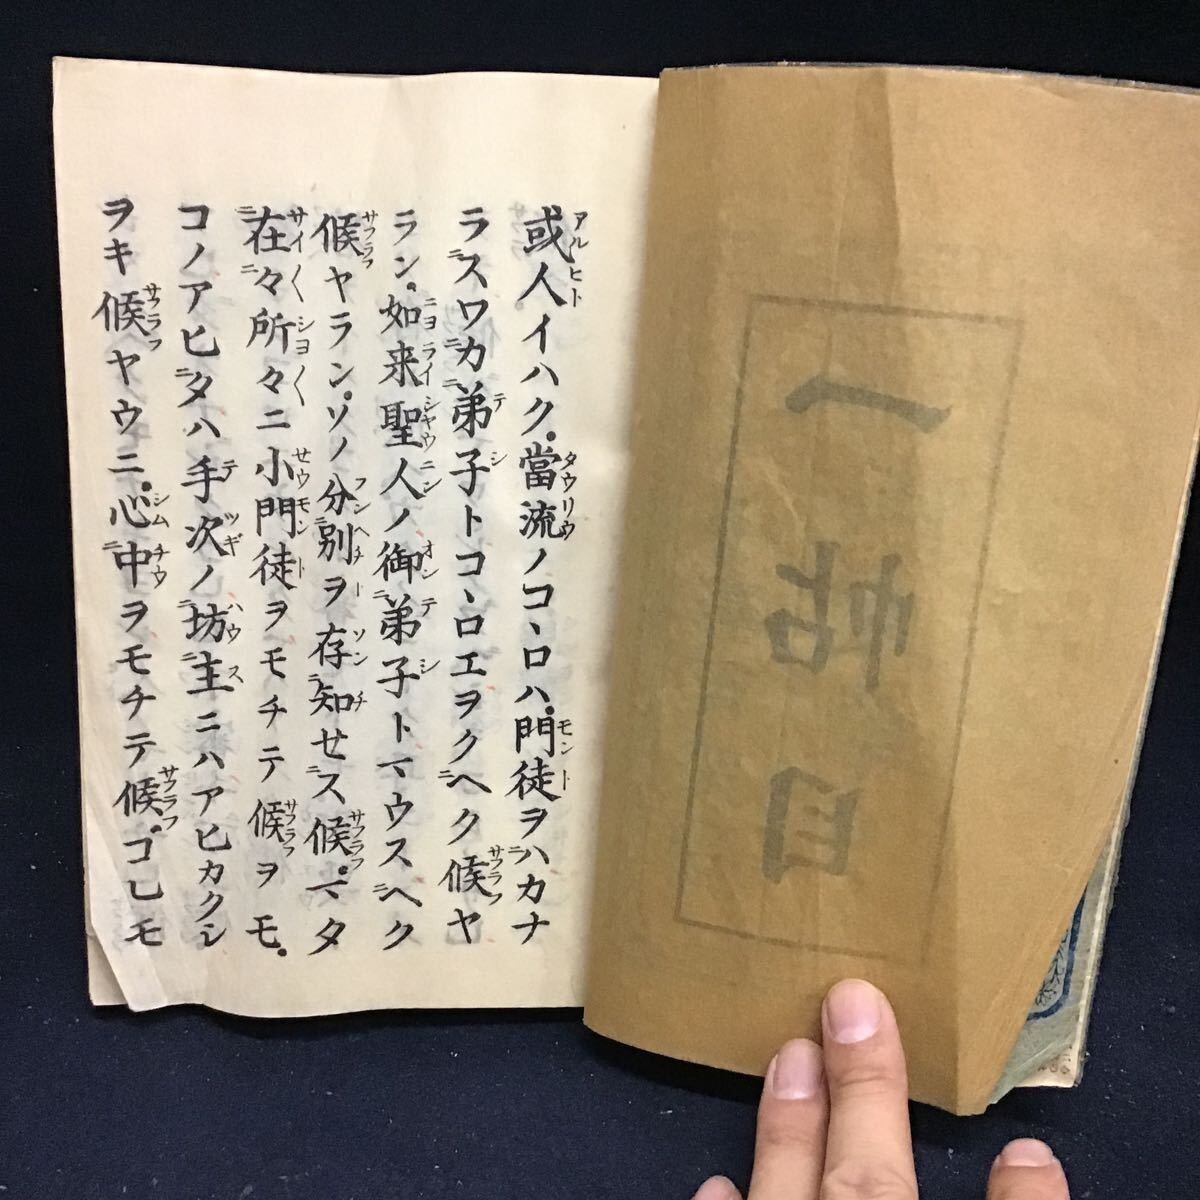 一帖目
或人イハク。當流ノコヽロハ。門徒ヲハカナ
ラスワカ弟子トコヽロエヲクヘク候ヤ
ラン。如来聖人ノ御弟子トマウスヘク
候ヤラン。ソノ分別ヲ存知セス候。マタ
在々所々ニ小門徒ヲモチテ候ヲモ。
コノアヒタハ手次ノ坊主ニハアヒカクシ
ヲキ候ヤウニ。心中ヲモチテ候。コレモ